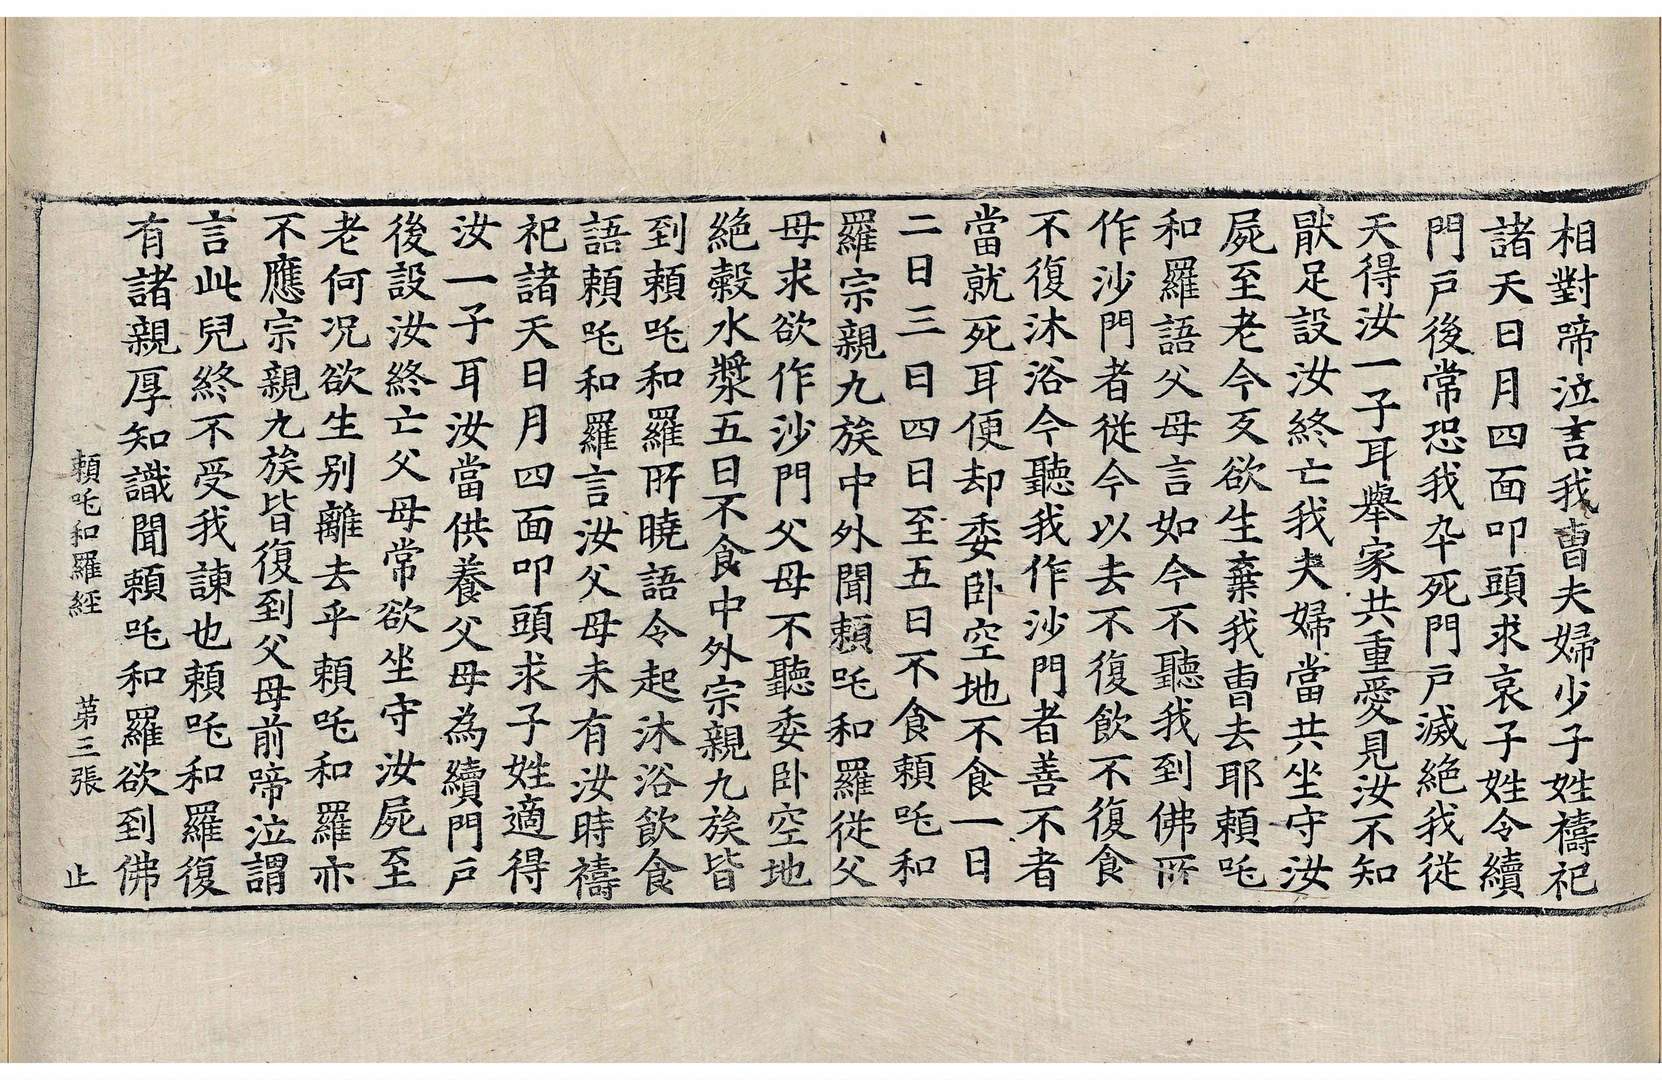 相對啼泣言我曹夫婦少子姓禱祀
諸天日月四面叩頭求哀子姓令續
門戸後常恐我卒死門戸滅絕我従
天得汝一子耳舉家共重愛見汝不知
猒足設汝終亡我夫婦當共坐守汝
屍至老今反欲生棄我曹去耶頼吒
和羅語父母言如今不聽我到佛所
作沙門者従今以去不復飲不復食
不復沐浴今聽我作沙門者善不者
當就死耳便却委卧空地不食一日
二日三日四日至五日不食頼吒和
羅宗親九族中外聞頼吒和羅従父
母求欲作沙門父母不聽委卧空地
絕穀水漿五日不食中外宗親九族皆
到頼吒和羅所曉語令起沐浴飲食
語頼吒和羅言汝父母未有汝時禱
祀諸天日月四面叩頭求子姓適得
汝一子耳汝當供養父母為續門戸
後設汝終亡父母常欲坐守汝屍至
老何況欲生別離去乎頼吒和羅亦
不應宗親九族皆復到父母前啼泣謂
言此兒終不受我諫也頼吒和羅復
有諸親厚知識聞頼吒和羅欲到佛
頼吒和羅経　第三張　止